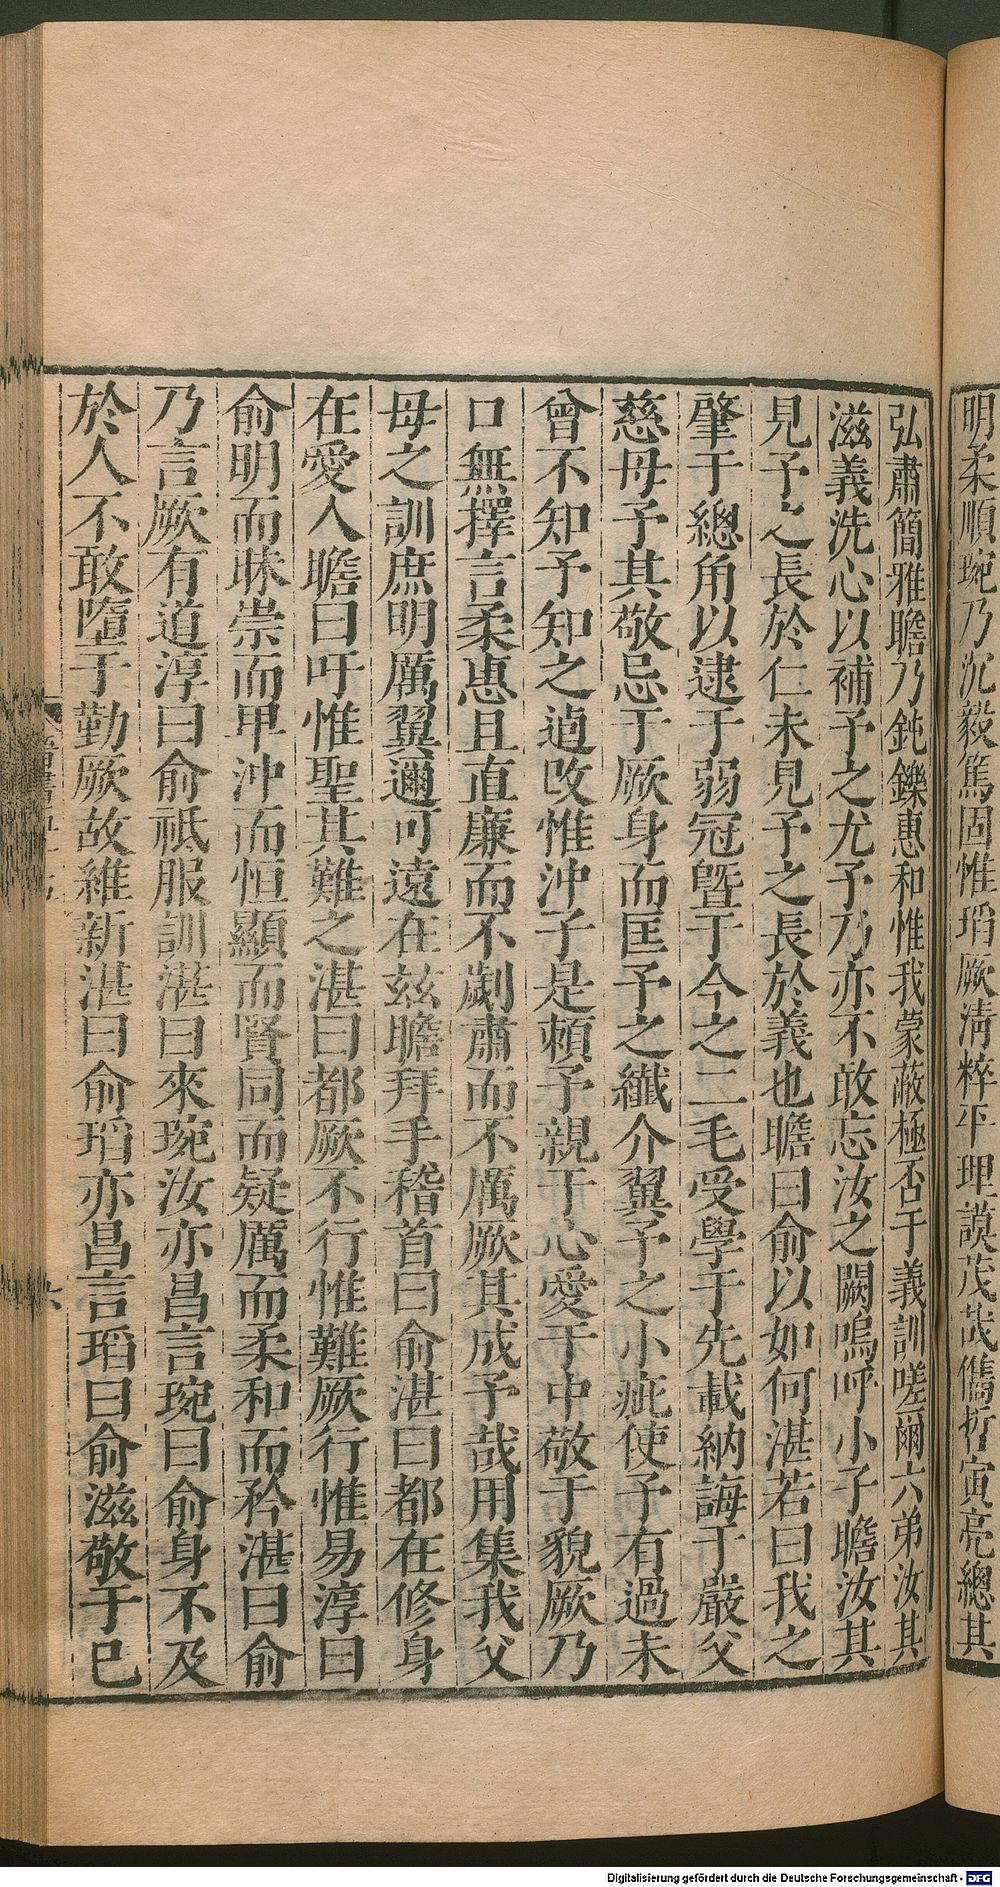 明柔順琬乃沉毅篤固惟瑫厥清粹平理謨茂哉儁哲寅亮總其
弘肅簡雅瞻乃鈍鑠惠和惟我蒙蔽極否于義訓嗟爾六弟汝其
滋義洗心以補予之尤予乃亦不敢忘汝之闕嗚呼小子瞻汝其
見予之長於仁未見予之長於義也瞻曰俞以如何湛若曰我之
肇于總角以逮于弱冠暨于今之二毛受學于先載納誨于嚴父
慈母予其敬忌于厥身而匡予之纖介翼予之小疵使予有過未
曾不知予知之逌攺惟沖子是賴予親于心愛于中敬于貌厥乃
口無擇言柔惠且直廉而不劌肅而不厲厥其成予哉用集我父
母之訓庶明厲翼邇可遠在兹瞻拜手稽首曰俞湛曰都在修身
在愛人瞻曰吁惟聖其難之湛曰都厥不行惟難厥行惟易淳曰
俞明而昧崇而甲沖而恒顯而賢同而疑厲而柔和而矜湛曰俞
乃言厥有道淳曰俞祗服訓湛曰來琬汝亦昌言琬曰俞身不及
於人不敢墮于勤厥故維新湛曰俞瑫亦昌言瑫曰俞滋敬于巳
六
Digitalisierung gefördert durch die Deutsche Forschungsgemeinschaft - DFG